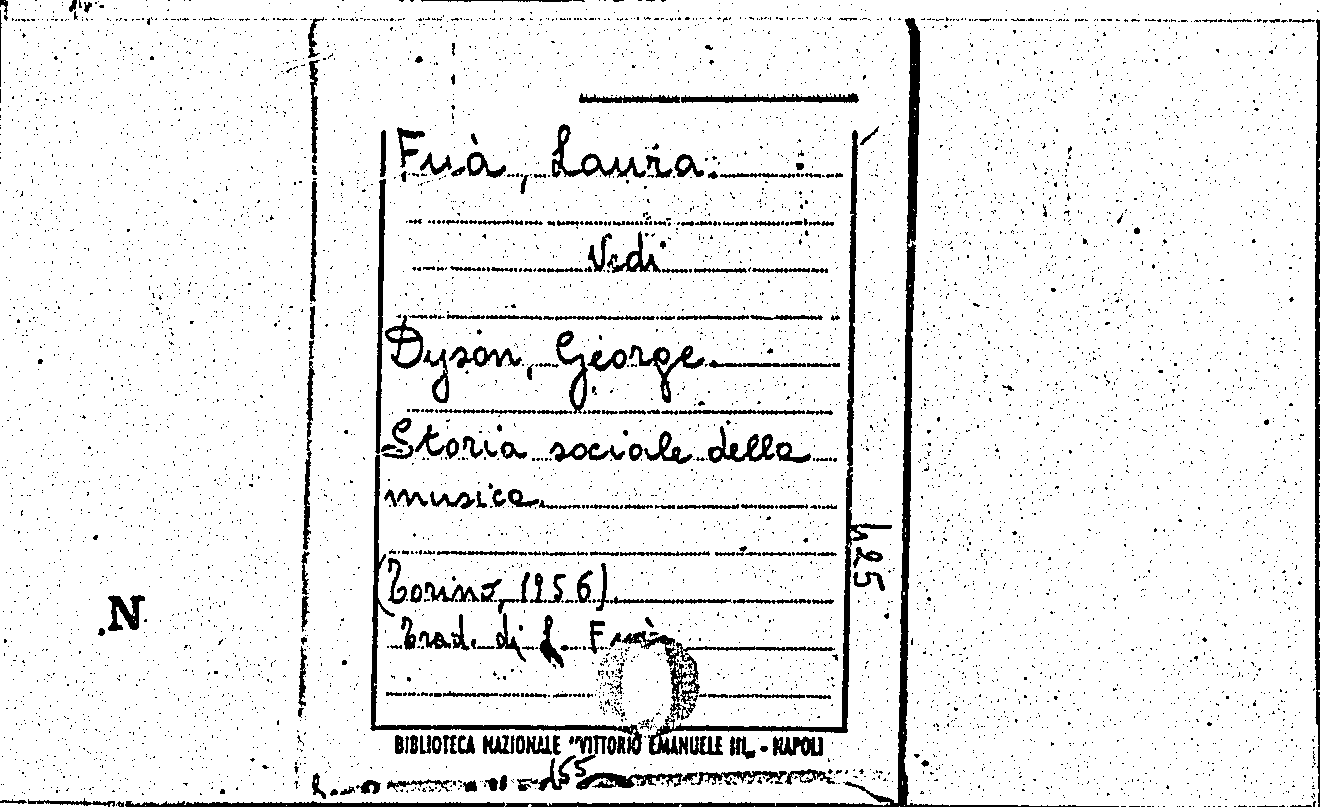 Fuà, Laura.
Vedi
Dyson, George.
Storia sociale della
musica.
(Torino, 1956).
Trad. di L. Fuà
h25
.N
BIBLIOTECA NAZIONALE "VITTORIO EMANUELE III„ - NAPOLI
155